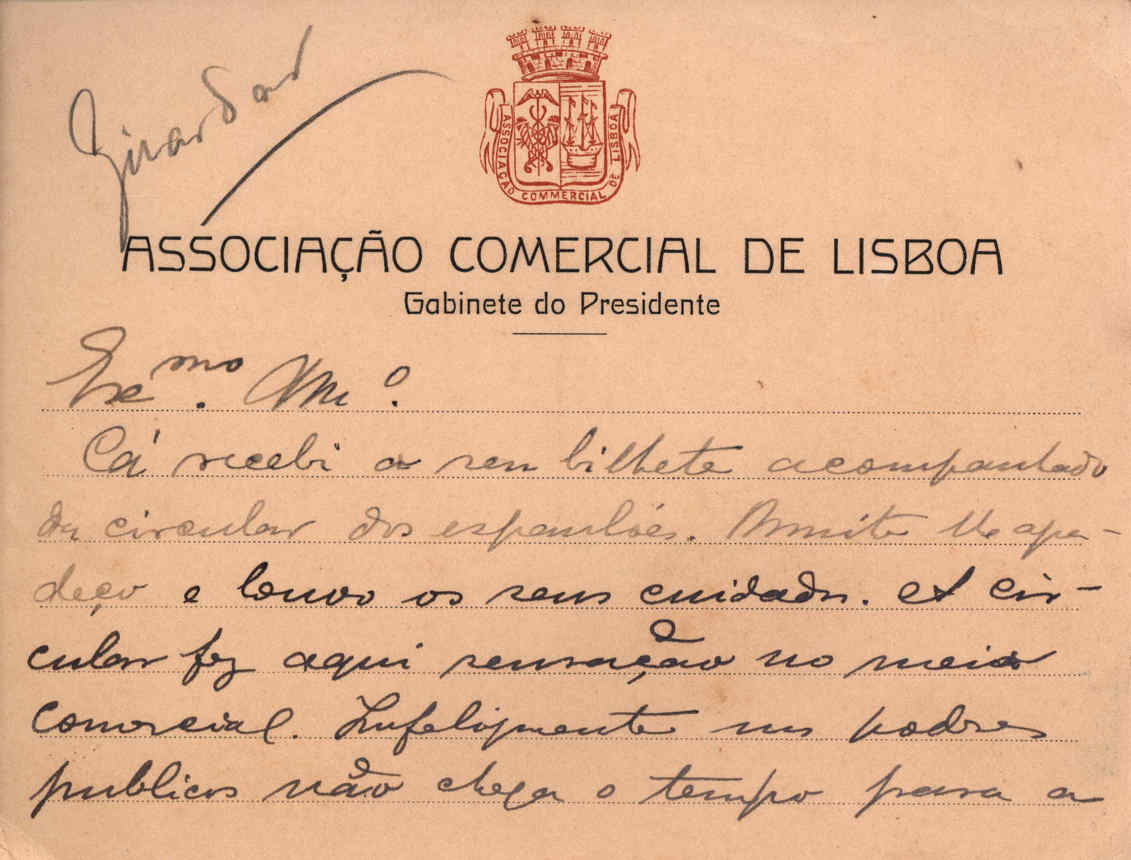 Girardot
ASSOCIAÇÃO COMMERCIAL DE LISBOA
ASSOCIAÇÃO COMERCIAL DE LISBOA
Gabinete do Presidente
Exe.mo Am.o
Cá recebi o seu bilhete acompanhado
da circular dos espanhóes. Muito lhe agra-
deço e louvo os seus cuidados. A cir-
cular fez aqui sensação no meio
comercial. Infelizmente nos podres
publicos não chega o tempo para a